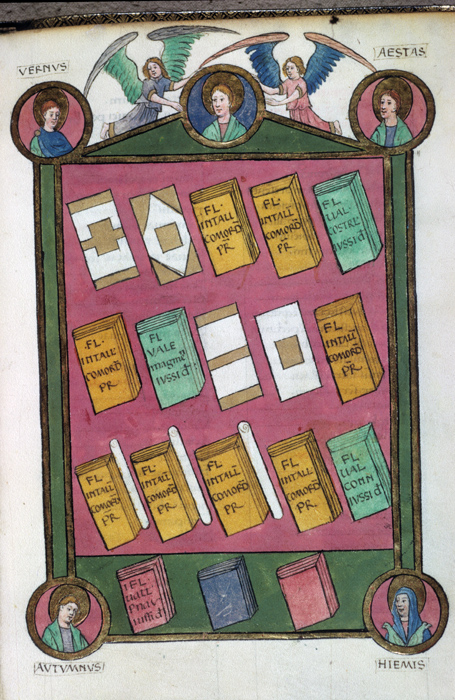 VERNVS
AESTAS
FL·
INTALL
COMORD
PR
FL·
INTALL
COMORD
PR
FL
VAL
COSTRE
IVSSI d
FL
INTALL
COMORD
PR
FL
VALE
magn
IVSSI d
FL
INTALL
COMORD
PR
FL
INTALL
COMORD
PR
FL
INTALL
COMORD
PR
FL
INTALL
COMORD
PR
FL
INTALL
COMORD
PR
FL
VAL
CONN
IVSSI d
FL
AVTVMNVS
HIEMIS